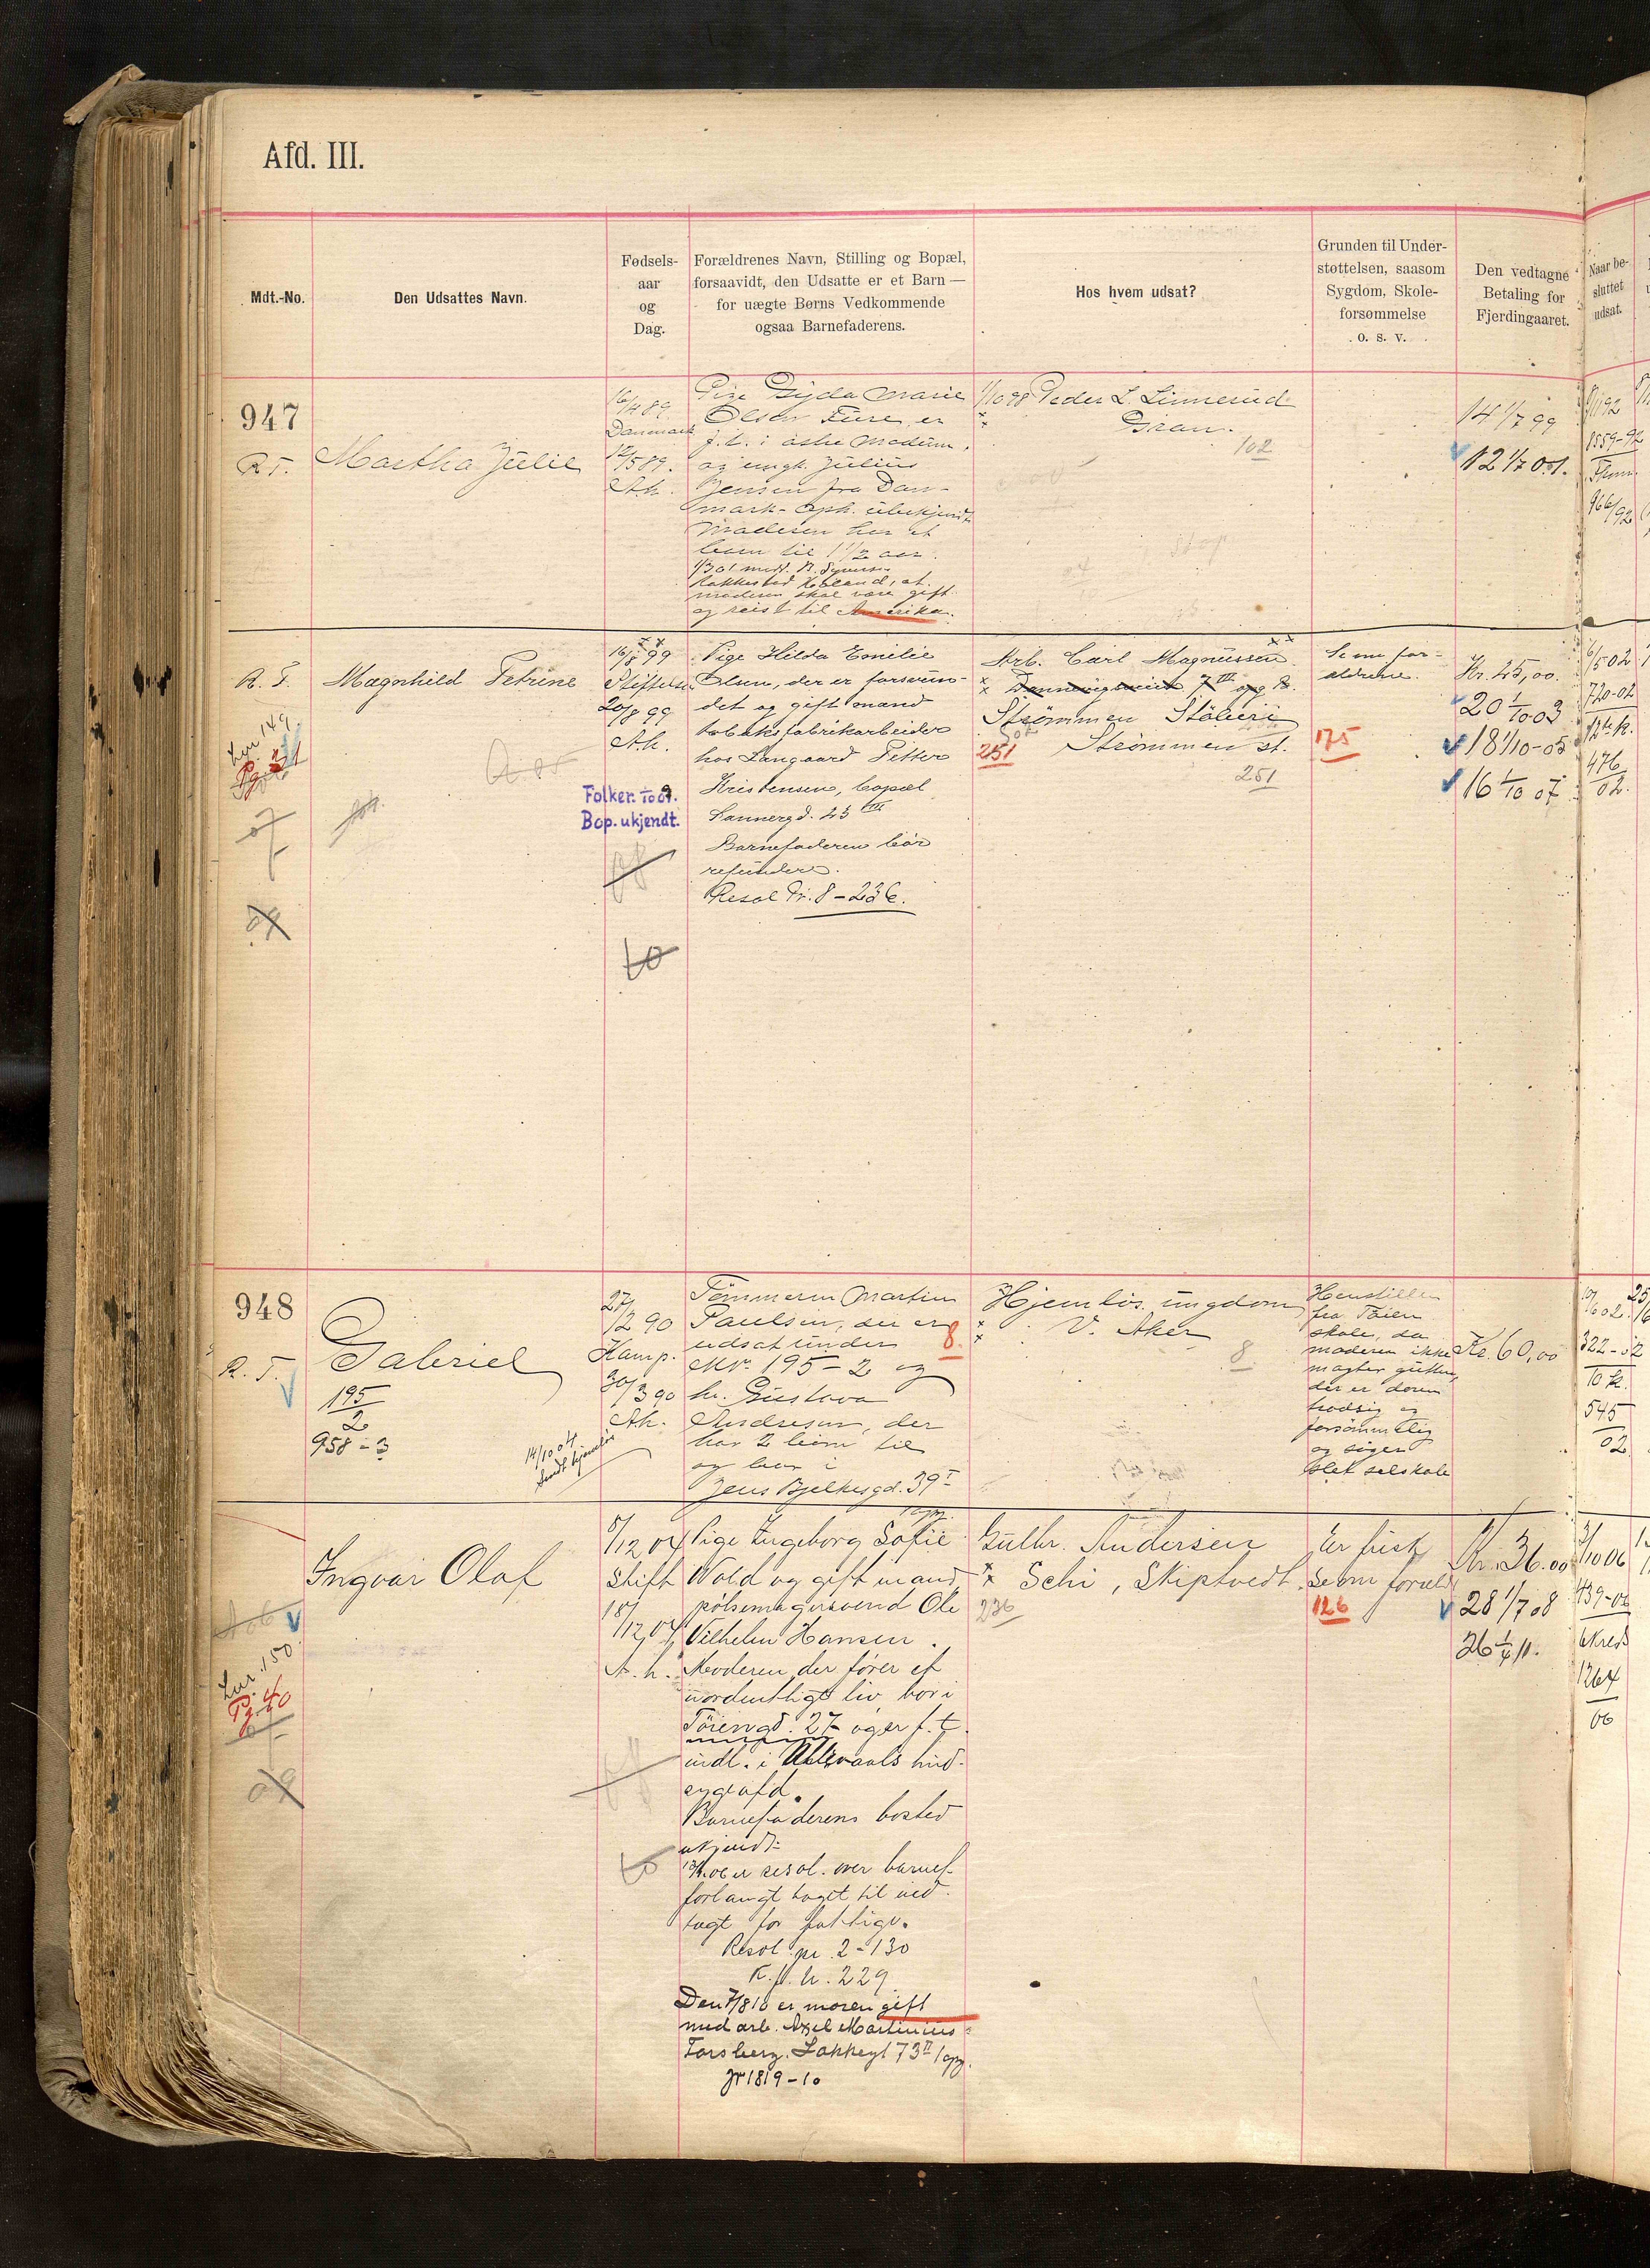 Afd. III.
Mdt.-No.
Den Udsattes Navn.
Fødsels-
aar
og
Dag.
Forældrenes Navn, Stilling og Bopæl,
forsaavidt, den Udsatte er et Barn —
for uægte Børns Vedkommende
ogsaa Barnefaderens.
Hos hvem udsat?
Grunden til Under-
støttelsen, saasom
Sygdom, Skole-
forsømmelse
o. s. v.
Den vedtagne
Betaling for
Fjerdingaaret.
Naar be-
sluttet
udsat.
947
R T.
Martha Julie
16/4 89.
Danmark
12/5 89.
Ah.
Pige Gyda Marie
Olsen Fure, er
f. t. i østre Modum,
og ungk. Julius
Jensen fra Dan-
mark - oph. ubekjendt
Moderen har et
barn til 1 1/2 aar.
Rakkestad
moderen skal være gift
og reist til Amerika.
1/10 98 Peder L. Linnerud
Gran.
102
14 1/7 99
12 1/7 01.
8/11 92
1559-92
966/92
R. T.
Magnhild Petrine
16/8 99
Stiftelsen
20/8 99
Ah.
Lnr 149
Folker. 1/10 09.
Bop. ukjendt.
Pige Hilda Emilie
Olsen, der er forsvun-
det og gift mand
tobaksfabrikarbeider
hos Langaard Petter
Kristensen, bopæl
Sannergd. 23 III
Barnefaderen bør
refundere.
Resol Nr. 8 - 236.
Arb. Carl Magnussen
7 III opg B.
Strømmen Støberi
251 Strømmen st.
251
Som for-
ældrene.
175
Kr. 45,00.
20 1/10 03
18 1/10 - 05
16 1/10 07
6/5 02
720-02
476
02.
09
10
948
R. T.
Gabriel
195
2
958 - 3
14/10 04
27/2 90
Kamp.
30/3 90
Ah.
Tømmerm Martin
Paulsen, der er
udsat under
Nr. 195 - 2 og
h. Gustava
Andresen, der
har 2 børn til
og bor i
Jens Bjelkesgd. 39 I
8.
Hjemløs ungdom
V. Aker
8
Henstillen
fra Tøien
skole, da
moderen ikke
magter gutten,
der er doven
trodsig og
forsømmelig
og søger
slet selskab
Kr. 60,00
322-02
545
02
Ingvar Olaf
Lnr. 150
Pg. 40
09
8/12 04
Stift
18/12 04
A. h.
Pige Ingeborg Sofie
Wold og gift mand
pølsemagersvend Ole
Vilhelm Hansen.
Moderen der fører et
uordentligt liv bor i
Tøiengd. 27 og er f. t.
indl. i Ullevaals hud-
sygeafd.
Barnefaderens bosted
ukjendt.
er resol. over barnef
forlangt taget til ind-
tægt for fattigv.
Resol nr. 2 - 130
K. p. h. 229
Den 7/8 10 er moren gift
med arb. Axel Martinius
Forsberg. Lakkegt 73 II 1 opg.
Jr 1819 - 10
Gulbr. Andersen
Schi, Skiptvedt.
236
Er frisk
som foræld
126
Kr. 36.00
28 1/7 08
26 1/4 11.
3/10 06
439-06
1264
06